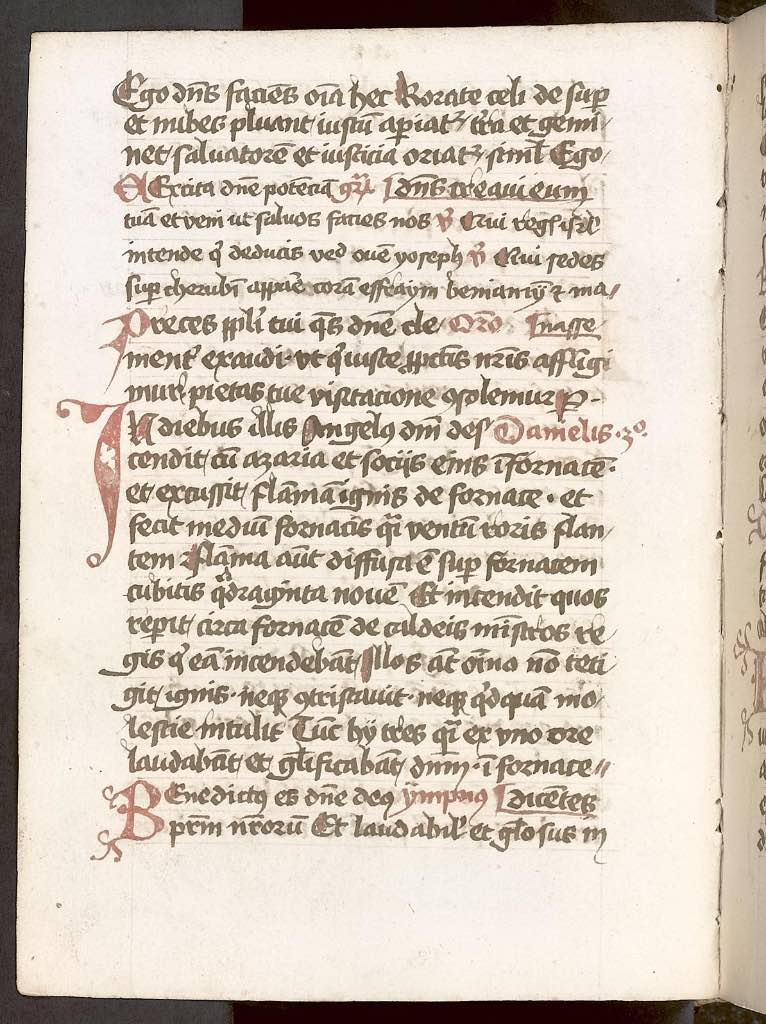 Ego dn̄s faciēs oīa hec Rorate celi de sup̄
et nubes pluant iustū ap̄iatꝛ t̄ra et gemi-
net saluatorē et iusticia oriatꝛ simł Ego
Excita dn̄e potenciā gr̄l dn̄s creaui eum
tuā et veni ut saluos facies nos ꝟ Qui regꝭ isrł
intende qͥ deducis velđ ouē yoseph ꝟ Qui sedes
sup cherubī appāe corā effraym beniamȳ ⁊ ma/
Preces ppłi tui qs̄ dn̄e cle Oro͞ Inasse
ment̄ exaudi ut qͥ iuste pctīs nr̄is affligi
mur pietas tue visitacione ꝯsolemur P
IN diebus illis Angelꝰ dnī des Danielis 3º
cendit cū azaria et socijs eius ī fornacē
et excussit flāmā ignis de fornace et
fecit mediū fornacis qͣi ventū roris flan
tem Flāma aūt diffusa ē sup fornacem
cubitis qͣdraginta nouē Et incendit quos
rep̄it circa fornacē de caldeis mīstros re
gis qͥ eā incendebāt Illos aūt oīno nō teti
git ignis neqꝫ ꝯtristauit neqꝫ qͥdquā mo
lestie intulit Tūc hij tres qͣi ex vno ore
laudabāt et glīficabāt dnm̄ ī fornace //
Benedictꝰ es dn̄e deꝰ ympnꝰ dicētes
pr̄m nr̄orū Et laudabił et glo͞sus in